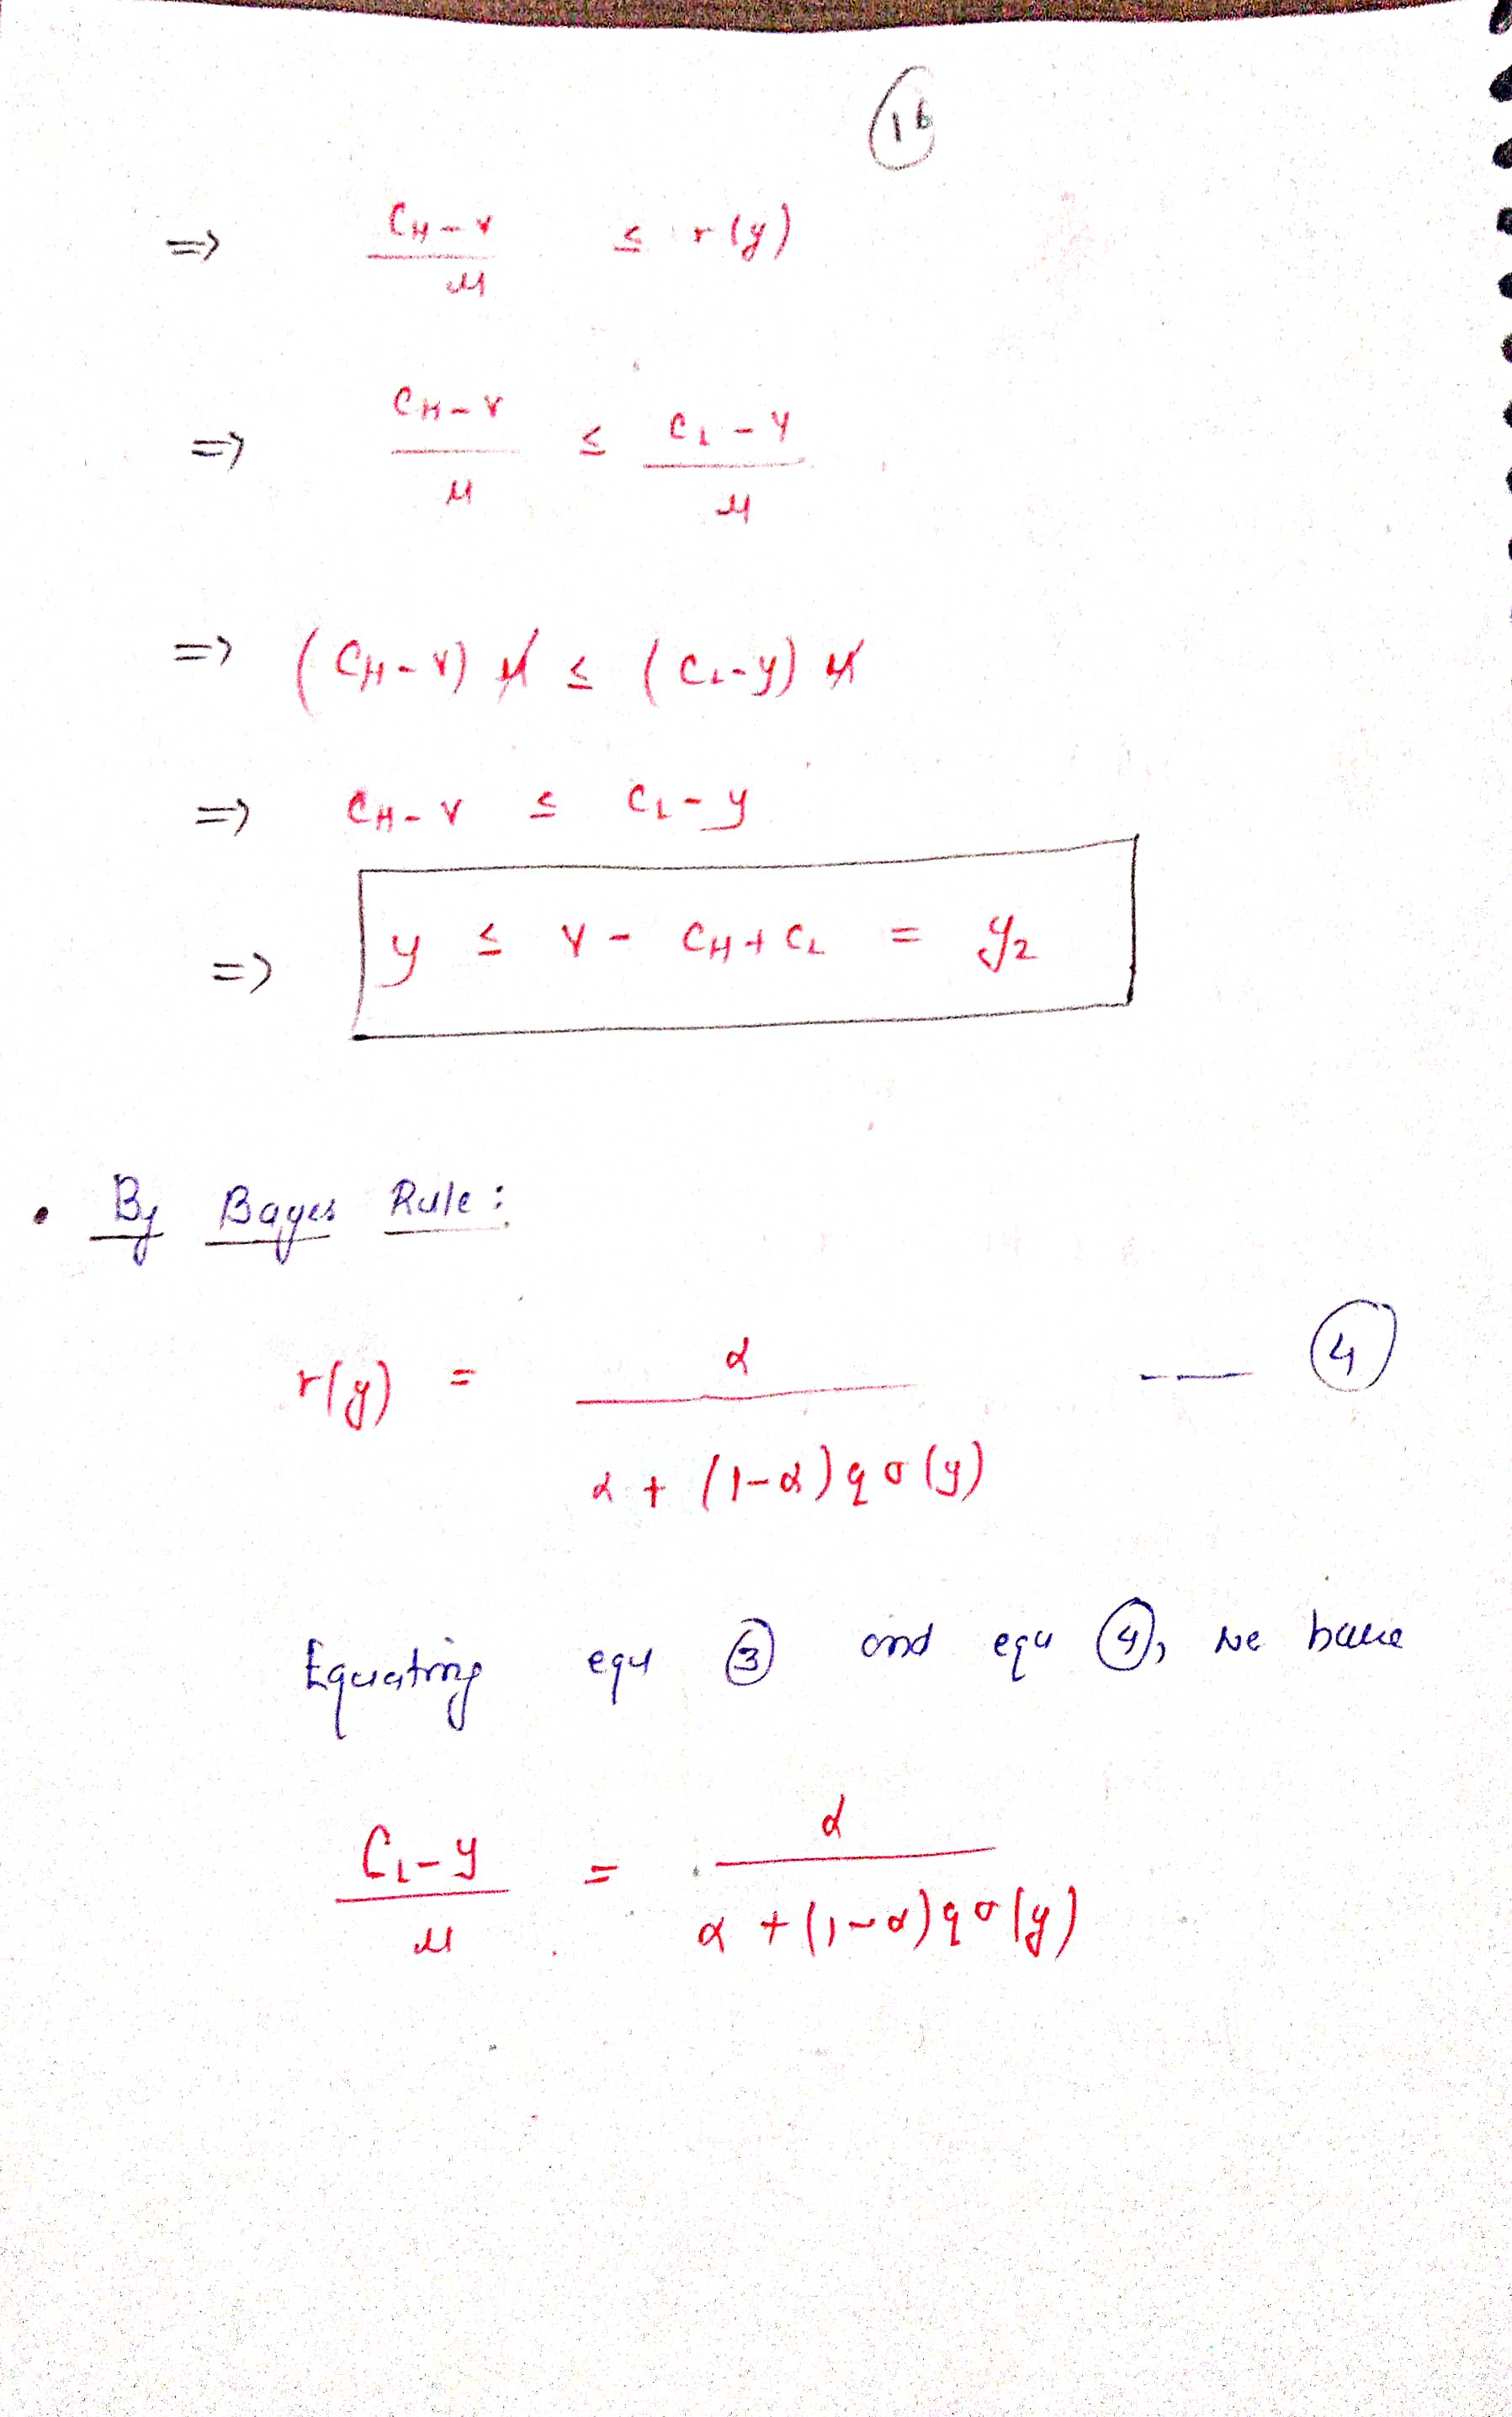 16
=> (C_H - γ)/μ ≤ r(y)
=> (C_H - γ)/μ ≤ (C_L - y)/μ
=> (C_H - γ) μ ≤ (C_L - y) μ
=> C_H - γ ≤ C_L - y
=> y ≤ γ - C_H + C_L = y_2
• By Bayes Rule:
r(y) = α/(α + (1-α) q σ(y)) — ④
Equating equ ③ and equ ④, we have
(C_L - y)/μ = α/(α + (1-α) q σ(y))